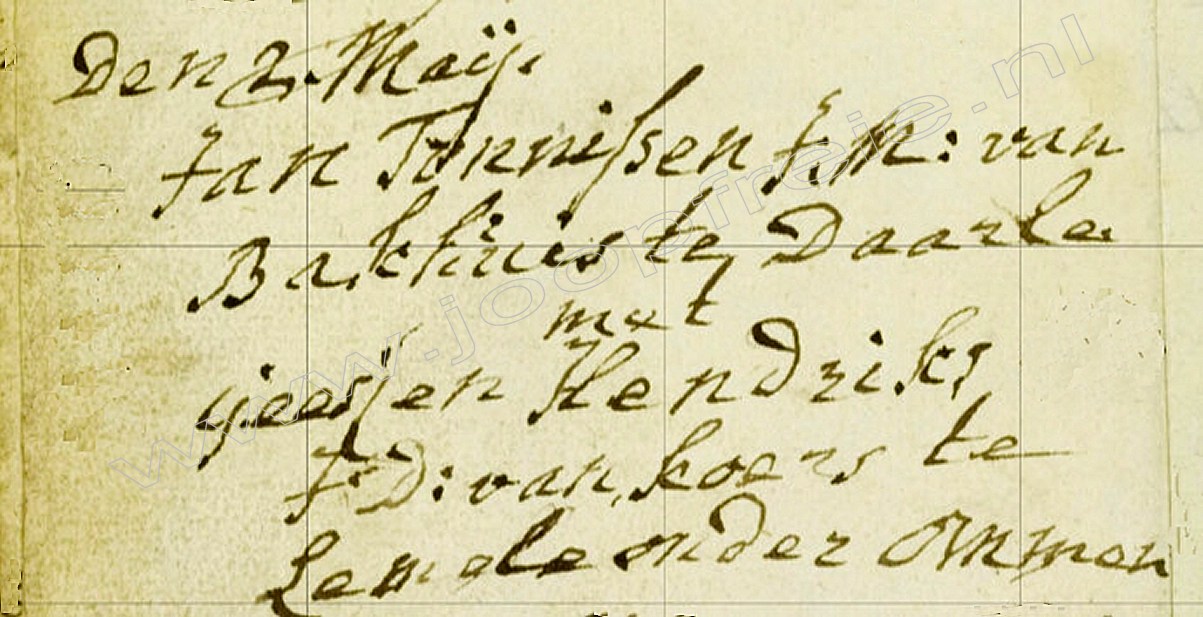 Den 2 Maij.
Jan Tonnissen J:M: van
Bakhuis te Daarle.
met
geessen Hendriks
J:D: van koers te
Lemele onder Ommen
www.joopfreie.nl